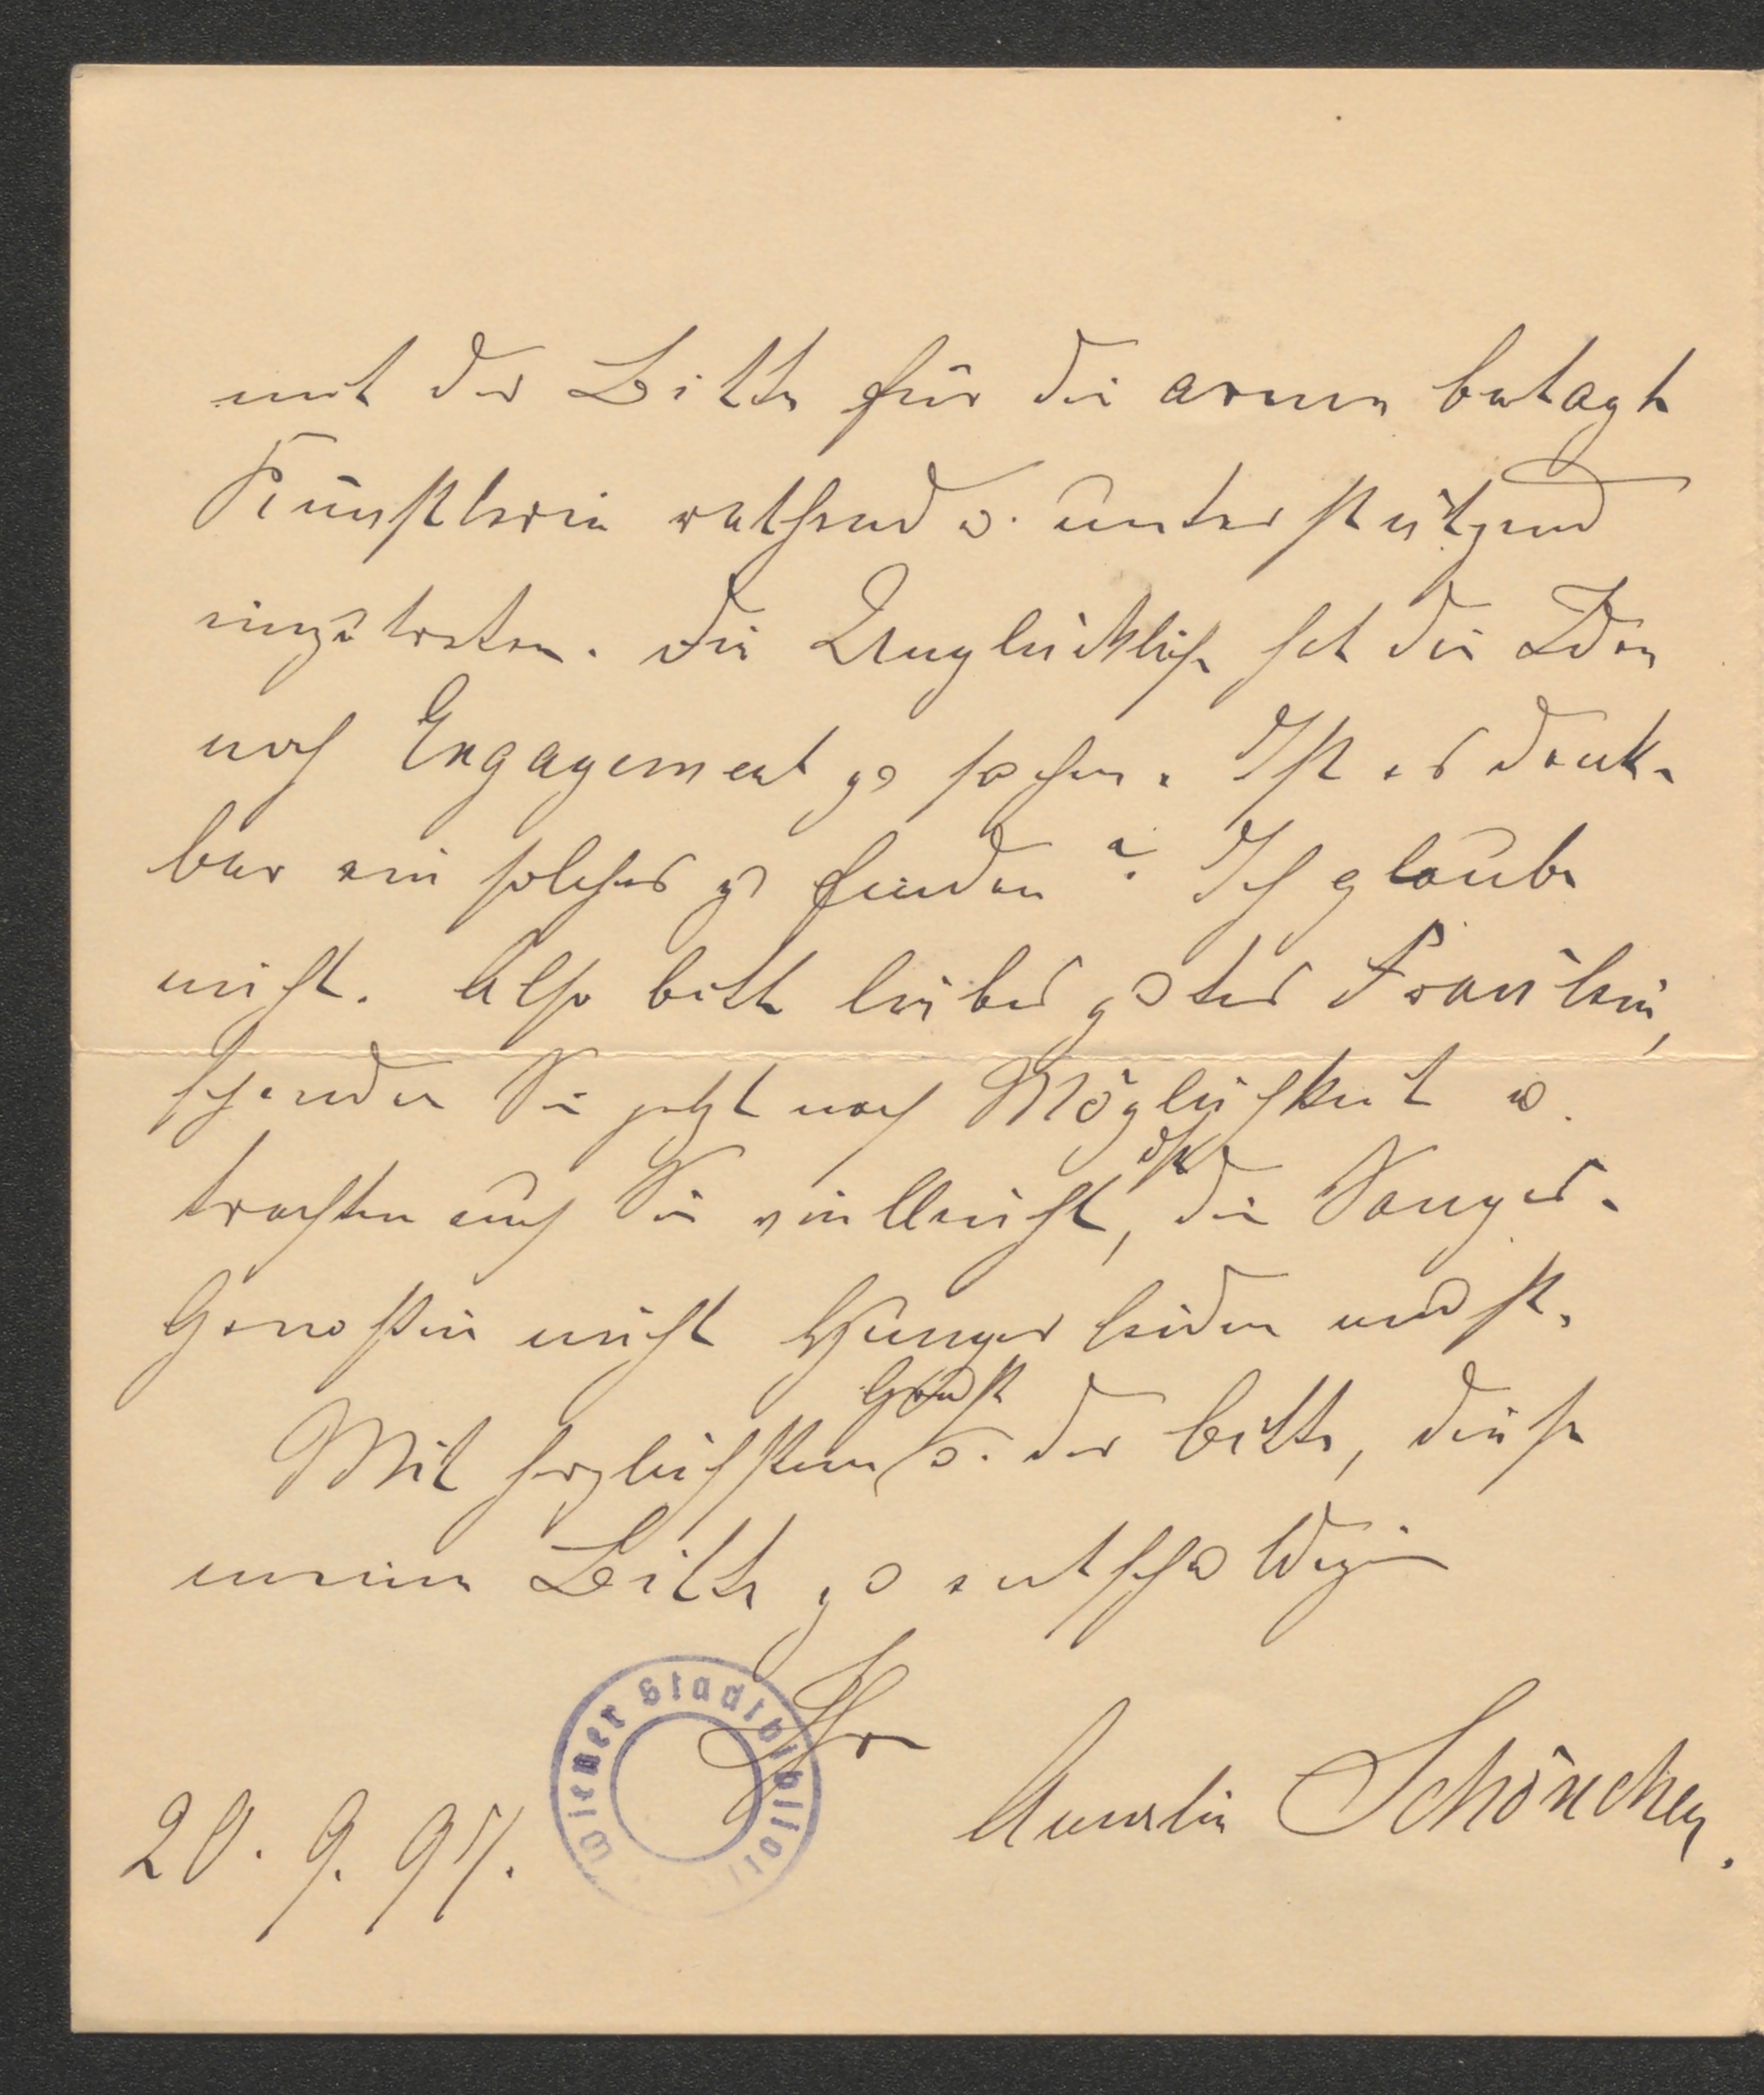 mit der Bitte für die arme betagte
Künstlerin rathend u. unterstützend
einzutreten. Die Unglückliche hat die Idee
noch Engagement zu suchen. Ist es denk-
bar ein solches zu finden? Ich glaube
nicht. Also bitte liebes gutes Fräulein,
spenden Sie jetzt nach Möglichkeit u.
trachten auch Sie vielleicht, dß die Sanges-
Genossin nicht Hunger leiden muß.
Mit herzlichstem Gruß u. der Bitte, diese
meine Bitte zu entschuldigen
Ihre
Amalie Schönchen.
20. 9. 97.
Wiener Stadtbibliot